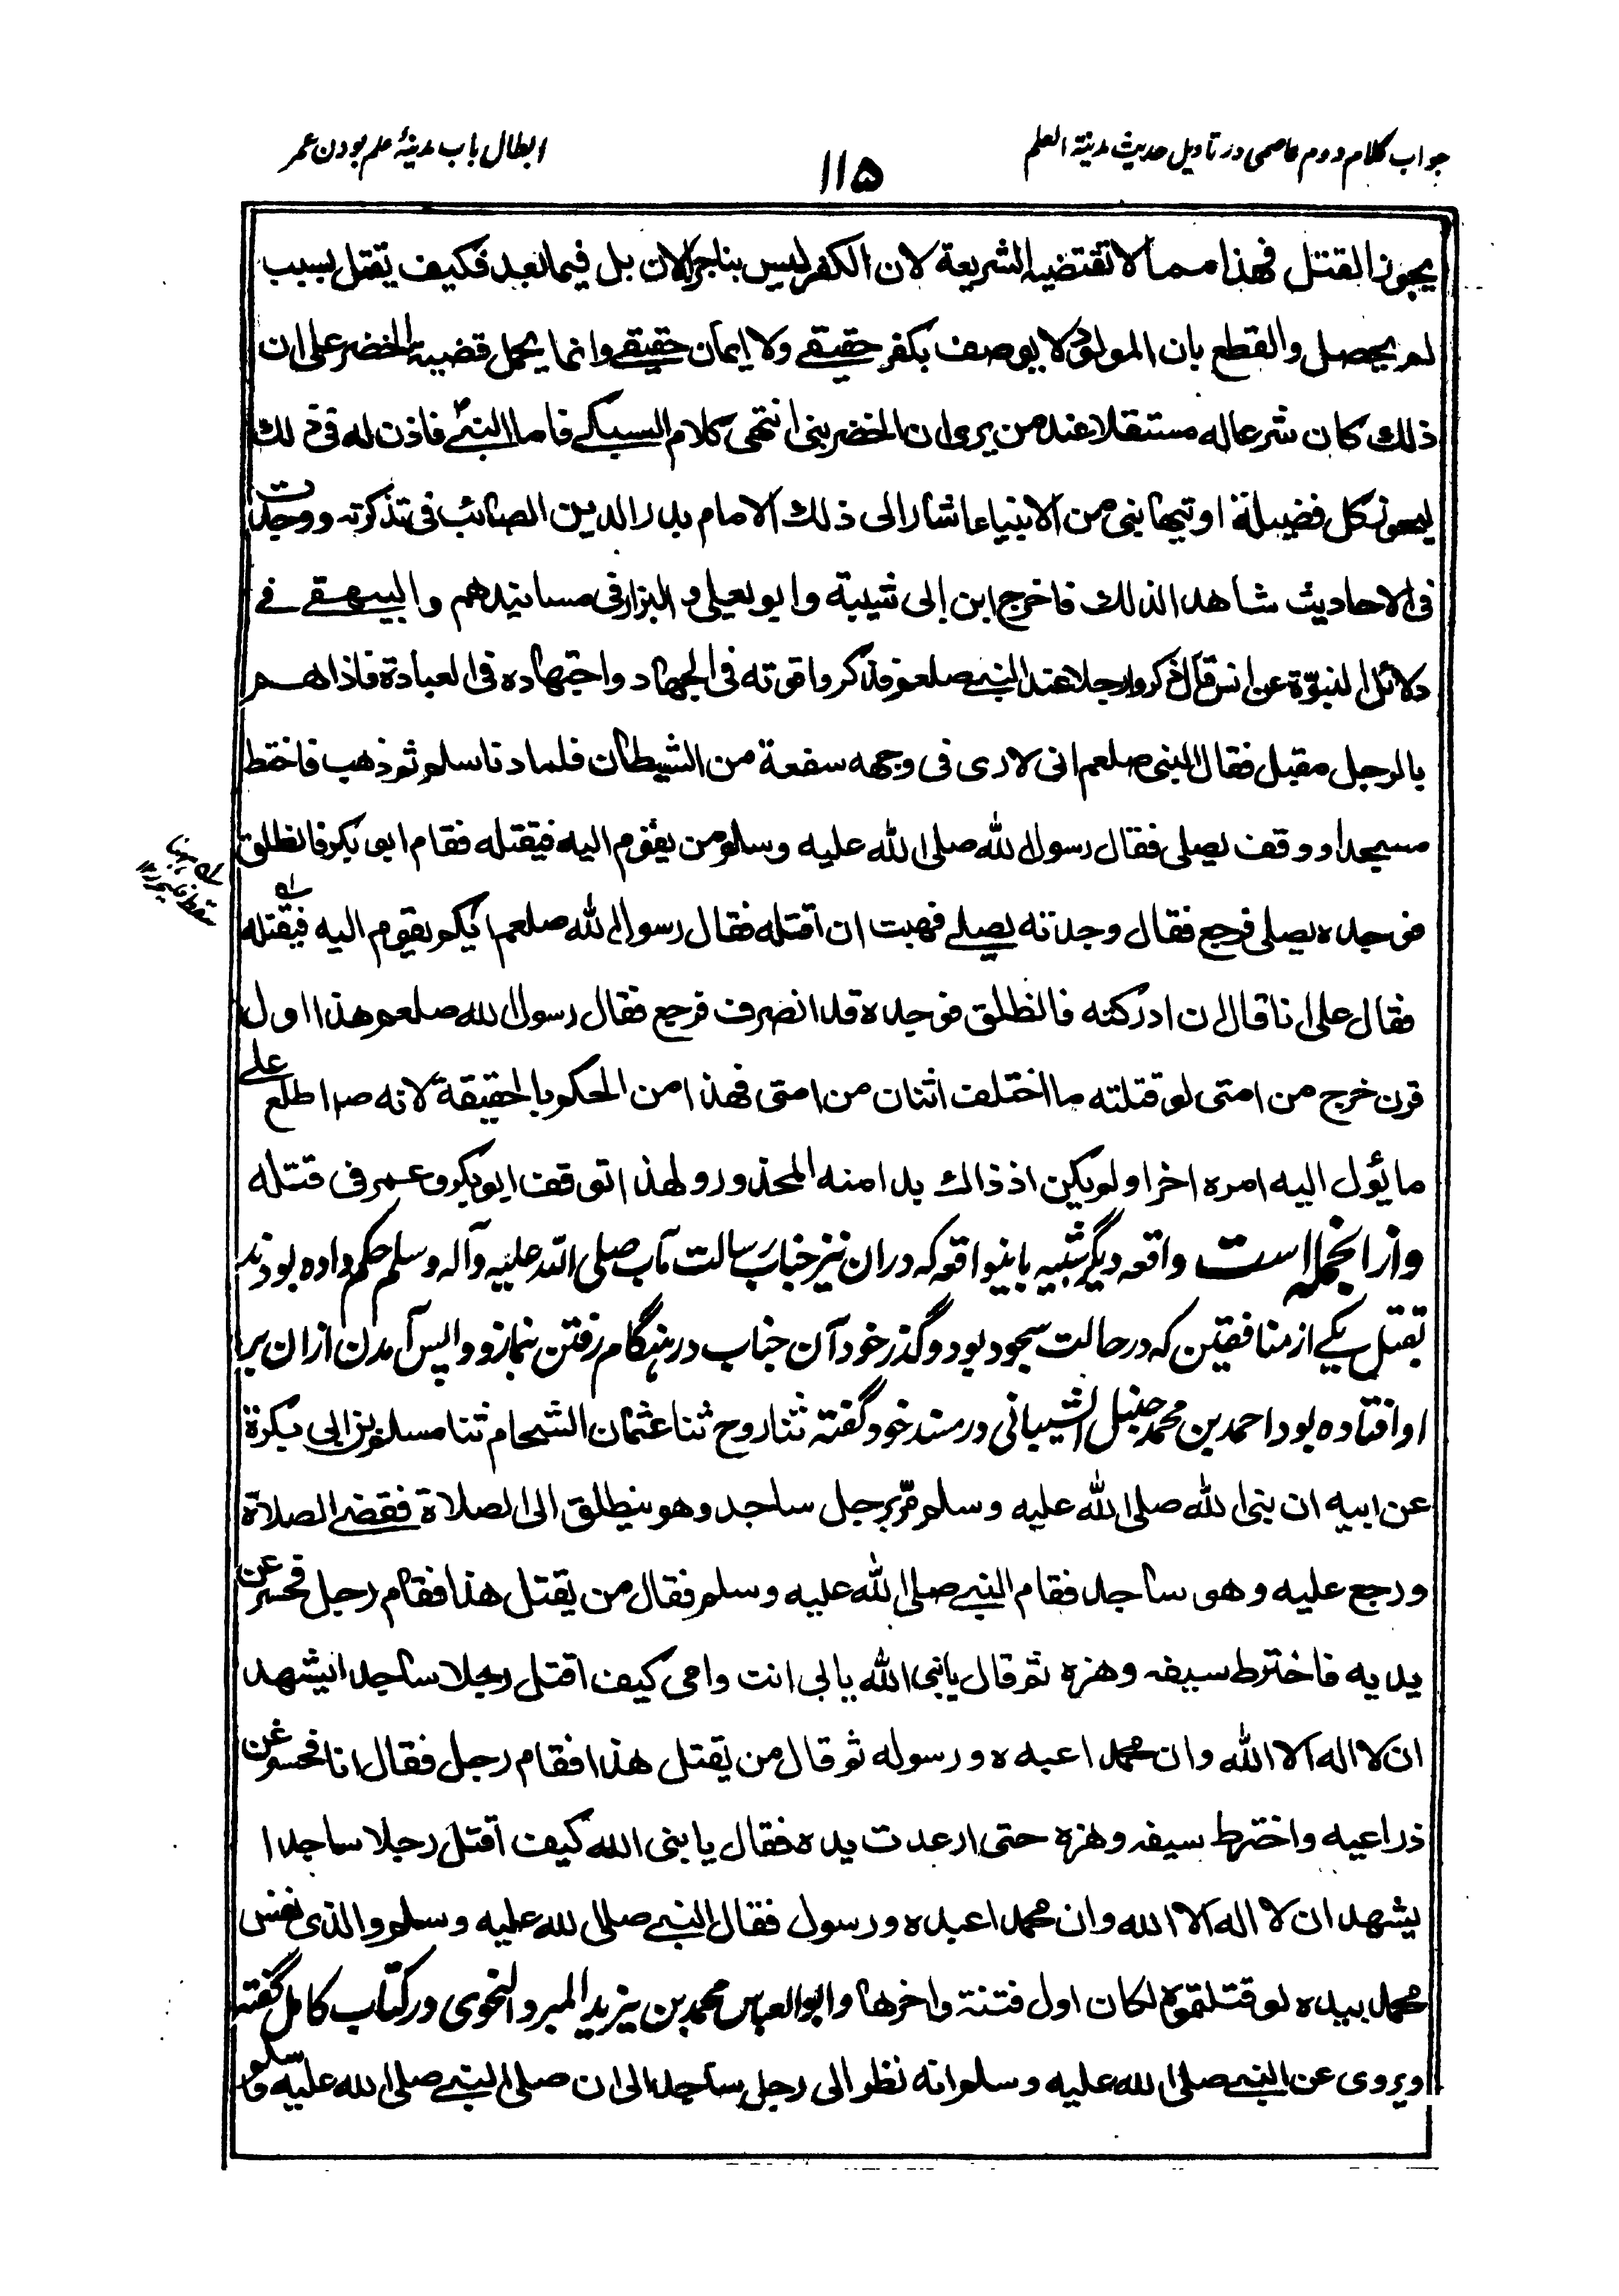 جواب کلام دوم عاصمی در تاویل حدیث مدینة العلم
۱۱۵
ابطال باب مدینهٔ علم بودن عمر
يجوز القتل فهذا مما لا تقتضيه الشريعة لان الكفر ليس بناجز الان بل فيما بعد فكيف يقتل بسبب
لم يحصل والقطع بان المولود لا يوصف بكفر حقيقي ولا ايمان حقيقي وانما يحمل قضية الخضر على ان
ذلك كان شرعا له مستقلا عند من يرى ان الخضر نبي انتهى كلام السبكي فاما النبي فاذن له في ذلك
ليحوز كل فضيلة اوتيها نبي من الانبياء اشار الى ذلك الامام بدر الدين الصائب في تذكرته ووجدت
في الاحاديث شاهدا لذلك فاخرج ابن ابي شيبة وابو يعلى و البزار في مسانيدهم والبيهقي في
دلائل النبوّة عن انس قال ذكروا رجلا عند النبي صلعم فذكروا قوته في الجهاد واجتهاده في العبادة فاذا هم
بالرجل مقبل فقال النبي صلعم اني لارى في وجهه سفعة من الشيطان فلما دنا سلم ثم ذهب فاختط
مسجدا ووقف يصلي فقال رسول الله صلى الله عليه وسلم من يقوم اليه فيقتله فقام ابو بكر فانطلق
فوجده يصلي فرجع فقال وجدته يصلي فهبت ان اقتله فقال رسول الله صلعم ايكم يقوم اليه فيقتله
فقال علي انا قال ان ادركته فانطلق فوجده قد انصرف فرجع فقال رسول الله صلعم هذا اول
قرن خرج من امتي لو قتلته ما اختلف اثنان من امتي فهذا من الحكم بالحقيقة لانه صم اطلع على
ما يؤل اليه امره اخرا ولم يكن اذ ذاك بدا منه المحذور ولهذا توقف ابو بكر وعمر في قتله
وازانجمله است واقعه دیگر شبیه باینواقعه که دران نیز جناب رسالت مآب صلی الله علیه وآله وسلم حکم داده بودند
بقتل یکے از منافقین که در حالت سجود بود و گذر خود آن جناب در هنگام رفتن نماز و واپس آمدن ازان بر
او افتاده بود احمد بن محمد حنبل الشیبانی در مسند خود گفته ثنا روح ثنا عثمان الشحام ثنا مسلم بن ابي بكرة
عن ابيه ان نبي الله صلى الله عليه وسلم مرّ برجل ساجد وهو ينطلق الى الصلاة فقضى الصلاة
ورجع عليه وهو ساجد فقام النبي صلى الله عليه وسلم فقال من يقتل هذا فقام رجل فحسر عن
يديه فاخترط سيفه وهزه ثم قال يا نبي الله بابي انت وامي كيف اقتل رجلا ساجدا يشهد
ان لا اله الا الله وان محمدا عبده ورسوله ثم قال من يقتل هذا فقام رجل فقال انا فحسر عن
ذراعيه واخترط سيفه وهزه حتى ارعدت يده فقال يا نبي الله كيف اقتل رجلا ساجدا
يشهد ان لا اله الا الله وان محمدا عبده ورسول فقال النبي صلى الله عليه وسلم والذي نفس
محمد بيده لو قتلتموه لكان اول فتنة واخرها وابوالعباس محمد بن یزید المبرد النحوی در کتاب کامل گفته
ويروى عن النبي صلى الله عليه وسلم انه نظر الى رجل ساجد الى ان صلى النبي صلى الله عليه وسلم